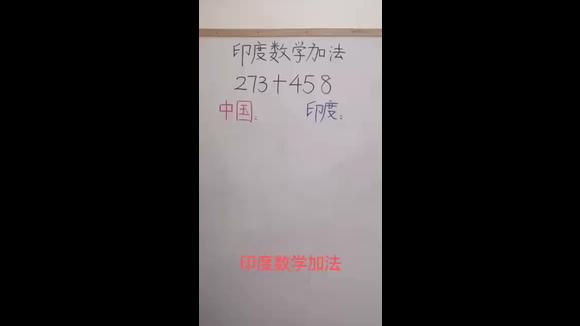 印度数学加法
273+458
中国： 印度：
印度数学加法